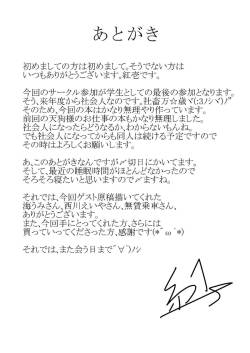 あとがき
初めましての方は初めまして。そうでない方は
いつもありがとうございます。紅壱です。
今回のサークル参加が学生としての最後の参加となります。
そう、来年度から社会人なのです。社畜万☆歳ヾ(:3ノシヾ)ﾉﾞ
そのため、今回の本はかなり無理やり作っています。
前回の天狗様のお仕事の本もかなり無理しました。
社会人になったらどうなるか、わからないもんね。
でも社会人になってからも同人は続ける予定ですので
その時はよろしくお願いします。
あ、このあとがきなんですが〆切日にかいてます。
そして、最近の睡眠時間がほとんどなかったので
そろそろ寝たいと思いますので〆ますね。
それでは、今回ゲスト原稿描いてくれた
海うみさん、西川えいやさん、無賃乗車さん、
ありがとうございます。
また、今回手にとってくれた方、さらには
買っていってくださった方、感謝です(*´ω｀*)
それでは、また会う日まで ﾞ∀ﾞ)ﾉｼ